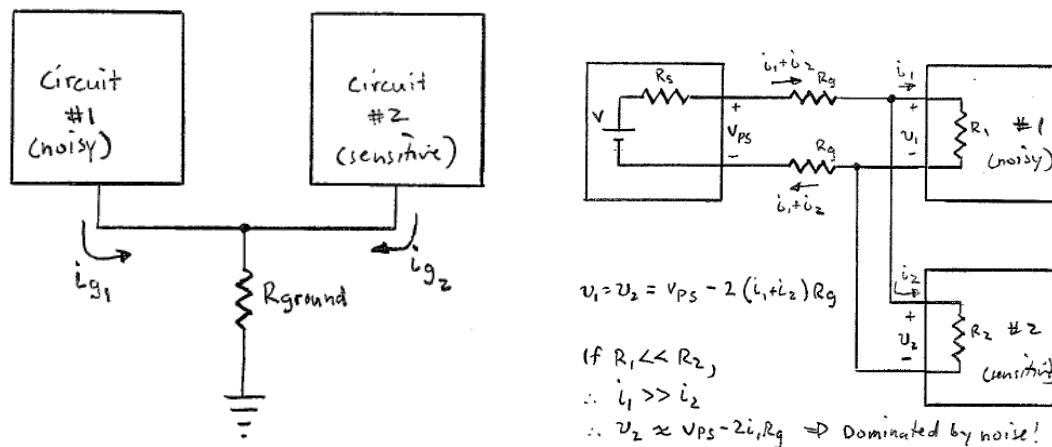 circuit
#1
(noisy)
circuit
#2
(sensitive)
ig1
ig2
Rground
V
Rs
+
VPS
-
i1+i2
Rg
Rg
i1+i2
i1
+
υ1
-
R1
#1
(noisy)
i2
+
υ2
-
R2
#2
(sensitive)
υ1 = υ2 = VPS - 2 (i1+i2) Rg
If R1 << R2,
∴ i1 >> i2
∴ υ2 ≈ VPS - 2i1Rg ⇒ Dominated by noise!